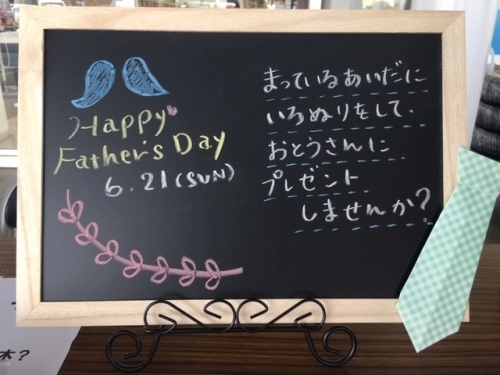 Happy
Father's Day
6.21(SUN)
まっているあいだに
いろぬりをして、
おとうさんに
プレゼント
しませんか?
木?